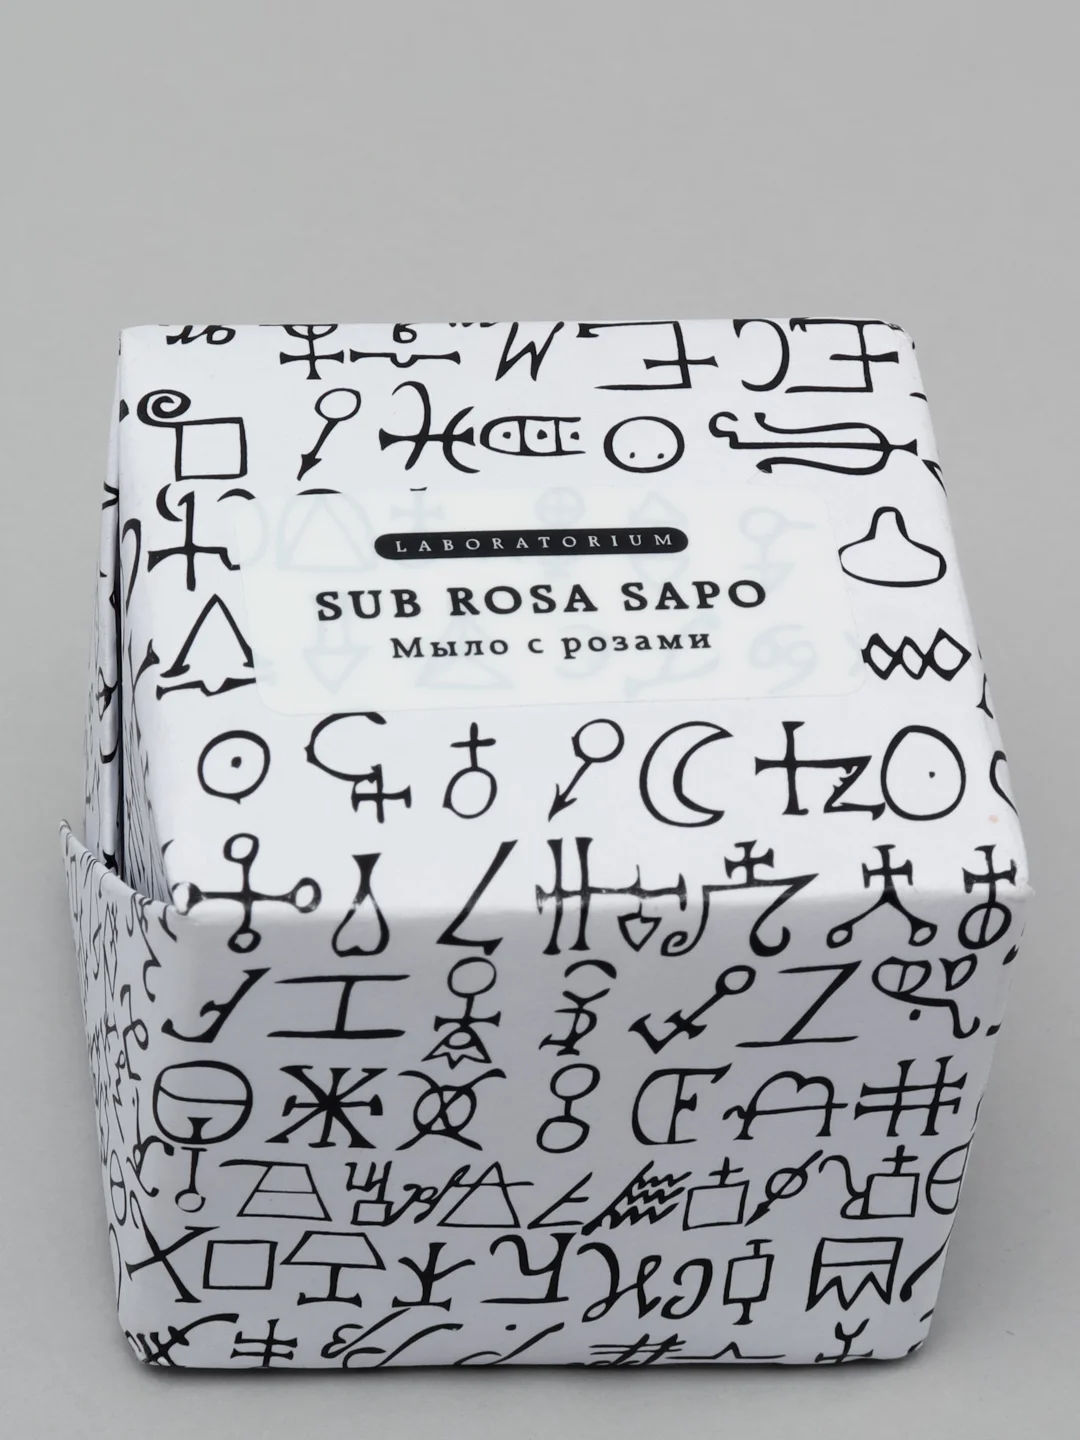 LABORATORIUM
SUB ROSA SAPO
Мыло с розами